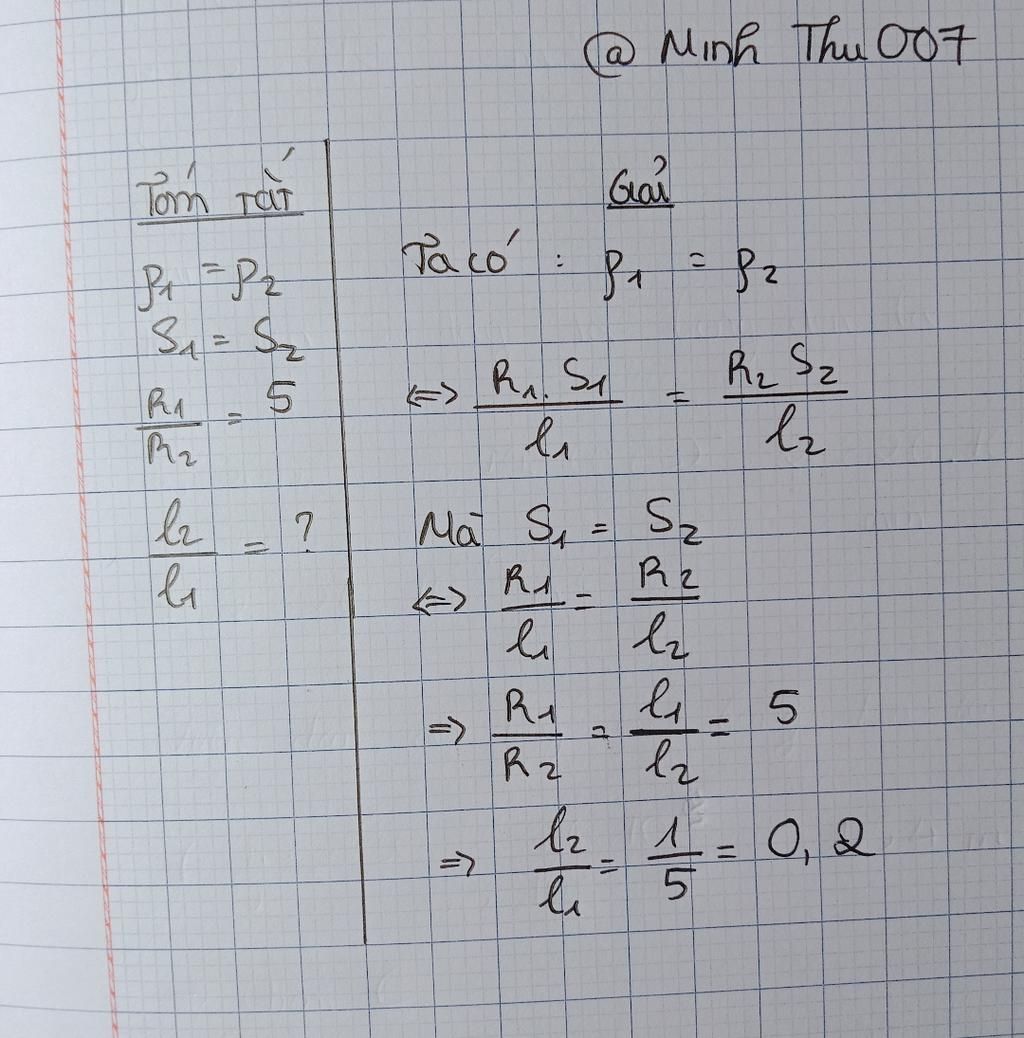 @ Minh Thu 007
Tóm tắt
ρ₁ = ρ₂
S₁ = S₂
R₁/R₂ = 5
l₂/l₁ = ?
Giải
Ta có : ρ₁ = ρ₂
⇔ R₁.S₁/l₁ = R₂S₂/l₂
Mà S₁ = S₂
⇔ R₁/l₁ = R₂/l₂
⇒ R₁/R₂ = l₁/l₂ = 5
⇒ l₂/l₁ = 1/5 = 0,2